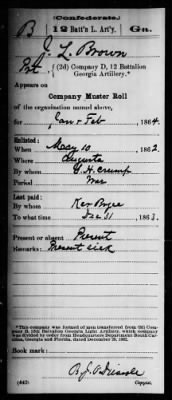 (Confederate.)
B 12 Batt'n L. Art'y. Ga.
J. L. Brown
Pvt, (2d) Company D, 12 Battalion
Georgia Artillery.*
Appears on
Company Muster Roll
of the organization named above,
for Jan & Feb, 1864.
Enlisted:
When May 10, 1862.
Where Augusta
By whom G. H. Crump
Period War
Last paid:
By whom
To what time Dec 31, 1863.
Present or absent Present
Remarks: Present sick
*This company was formed of men transferred from (2d) Company
Georgia Light Artillery, which company
was divided by order from Headquarters Department South Carolina,
Georgia and Florida, dated December 1862.
Book mark:
(642) Copyist.